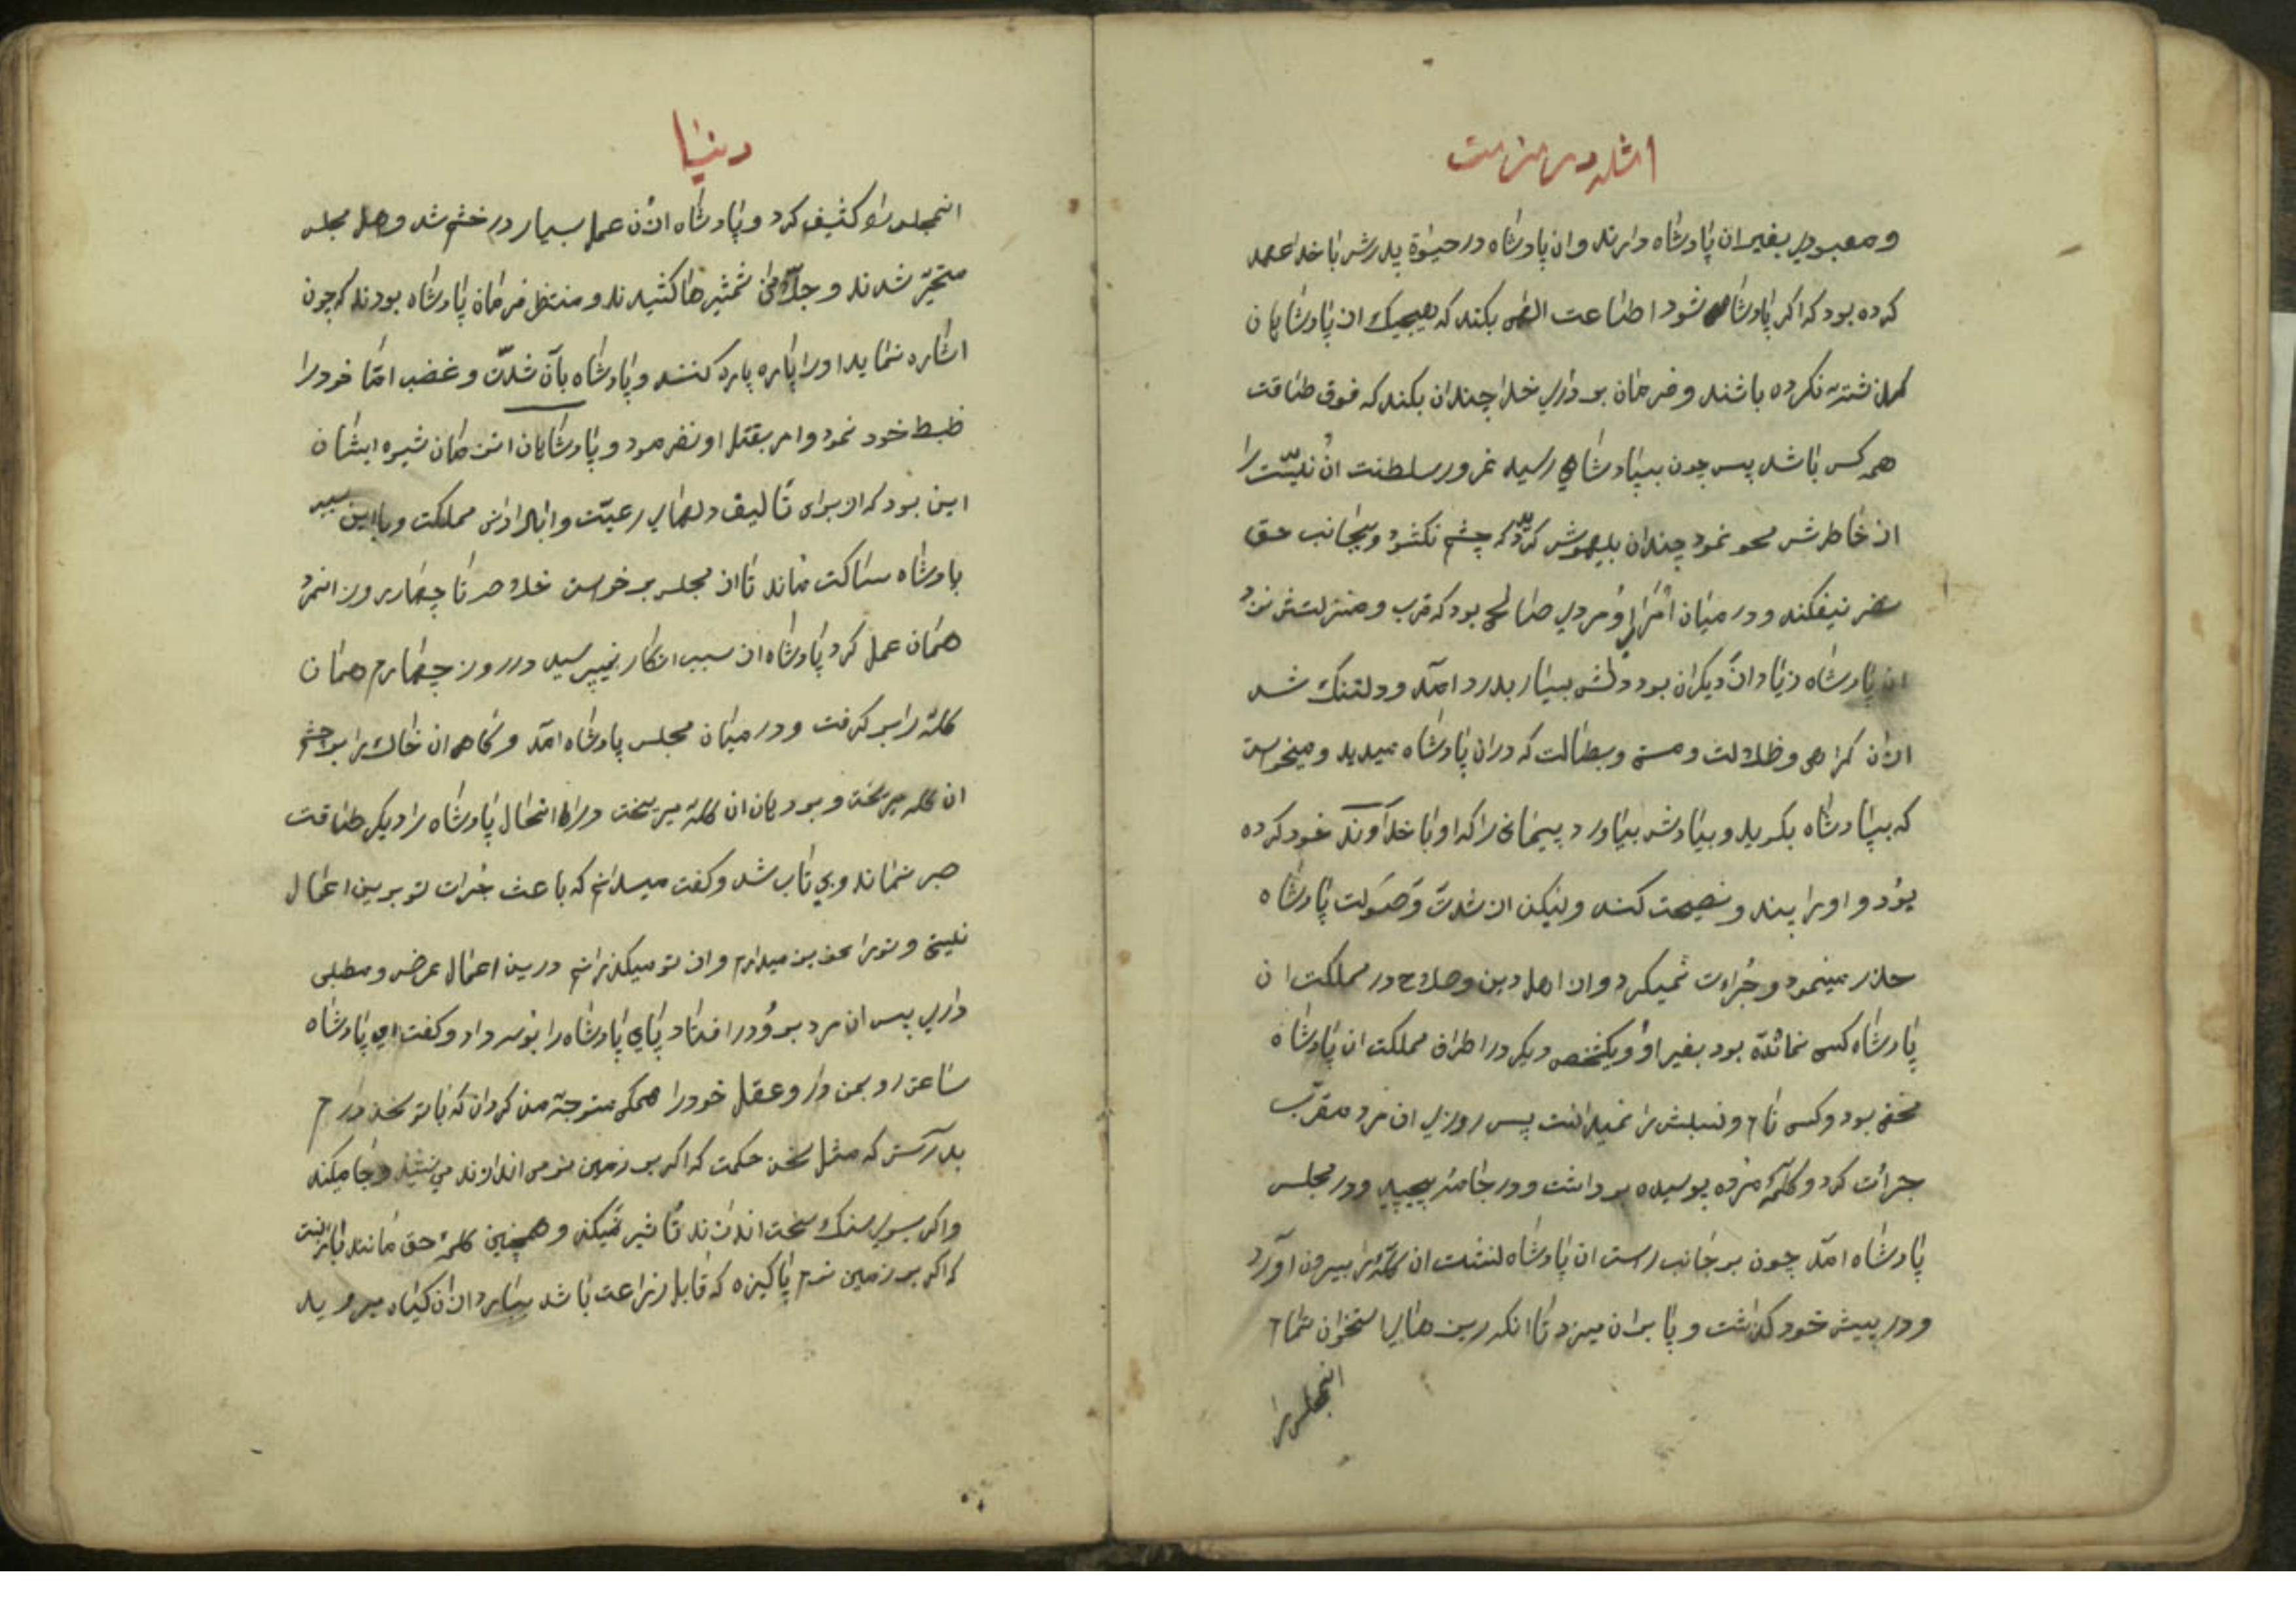 امثله در مزمت
و معبودی بغیر ان پادشاه دارند و ان پادشاه در حیوة پدرش با خدا عهد
کرده بود که اکر پادشاه شود اطاعت الهی بکند که هیچیک از پادشاهان
کذشته نکرده باشند و فرمان برداری خدا چندان بکند که فوق طاقت
همه کس باشد پس چون بپادشاهی رسید غرور سلطنت ان نیّت را
از خاطرش محو نمود چندان بیهوش کردید که چشم نکشود و بجانب حق
نظر نیفکند و در میان امرای او مردی صالح بود که قرب و منزلتش نزد
ان پادشاه زیاد از دیکران بود دلش بسیار بدرد امد و دلتنک شد
از ان کمراهی و ظلالت و مستی و بطالت که در ان پادشاه میدید و میخواست
که بپادشاه بکوید و بیادش بیاورد پیمانی را که او با خداوند خود کرده
بود و او را پند و نصیحت کند ولیکن از شدت و صولت پادشاه
حذر مینمود و جرات نمیکرد و از اهل دین و صلاح در مملکت ان
پادشاه کسی نمانده بود بغیر او و یکشخص دیکر در اطراف مملکت ان پادشاه
مخفی بود و کسی نام و نسبش را نمیدانست پس روزی ان مرد مقرب
جرات کرد و کلهٔ مرده پوسیده برداشت و در جامه پیچید و در مجلس
پادشاه امد چون بر جانب راست ان پادشاه نشست ان کله را بیرون اورد
و در پیش خود کذاشت و پا بر ان میزد تا انکه ریزهای استخوان تمام
انمجلس را
دنیا
انمجلس را کثیف کرد و پادشاه از ان عمل بسیار در خشم شد و اهل مجلس
متحیّر شدند و جلادان شمشیرها کشیدند و منتظر فرمان پادشاه بودند که چون
اشاره نماید او را پاره پاره کنند و پادشاه بآن شدّت و غضب امّا خود را
ظبط خود نمود و امر بقتل او نفرمود و پادشاهان ان زمان شیوه ایشان
این بود که از برای تالیف دلهای رعیّت و ابادانی مملکت و باین سبب
پادشاه ساکت ماند تا از مجلس برخواست خلاصه تا چهار روز انمرد
همان عمل کرد پادشاه از سبب انکار نمیپرسید در روز چهارم همان
کله را بر کرفت و در میان مجلس پادشاه امد و کاهی ان خاک را بر چشم
ان کله میریخت و بر دهان ان کله میریخت در انحال پادشاه را دیکر طاقت
صبر نماند و بی تاب شد و کفت میدانم که باعث جرات تو بر این اعمال
نیستی و تو را میدارم و از تو میکذرانم در این اعمال غرض و مطلبی
داری پس ان مرد بر رو در افتاد پای پادشاه را بوسه داد و کفت ای پادشاه
ساعتی رو بمن دار و عقل خود را همکی متوجّه من کردان که با تو سخن دارم
بدرستی که مثل سخن حکمت که اکر بر زمین نرمی اندازند می نشیند و جا میکند
و اکر بسوی سنک سخت اندازند تاثیر نمیکند و همچنین کلمهٔ حق مانند بارانست
که اکر بر زمین نرم پاکیزه که قابل زراعت باشد ببارد از ان کیاه میروید